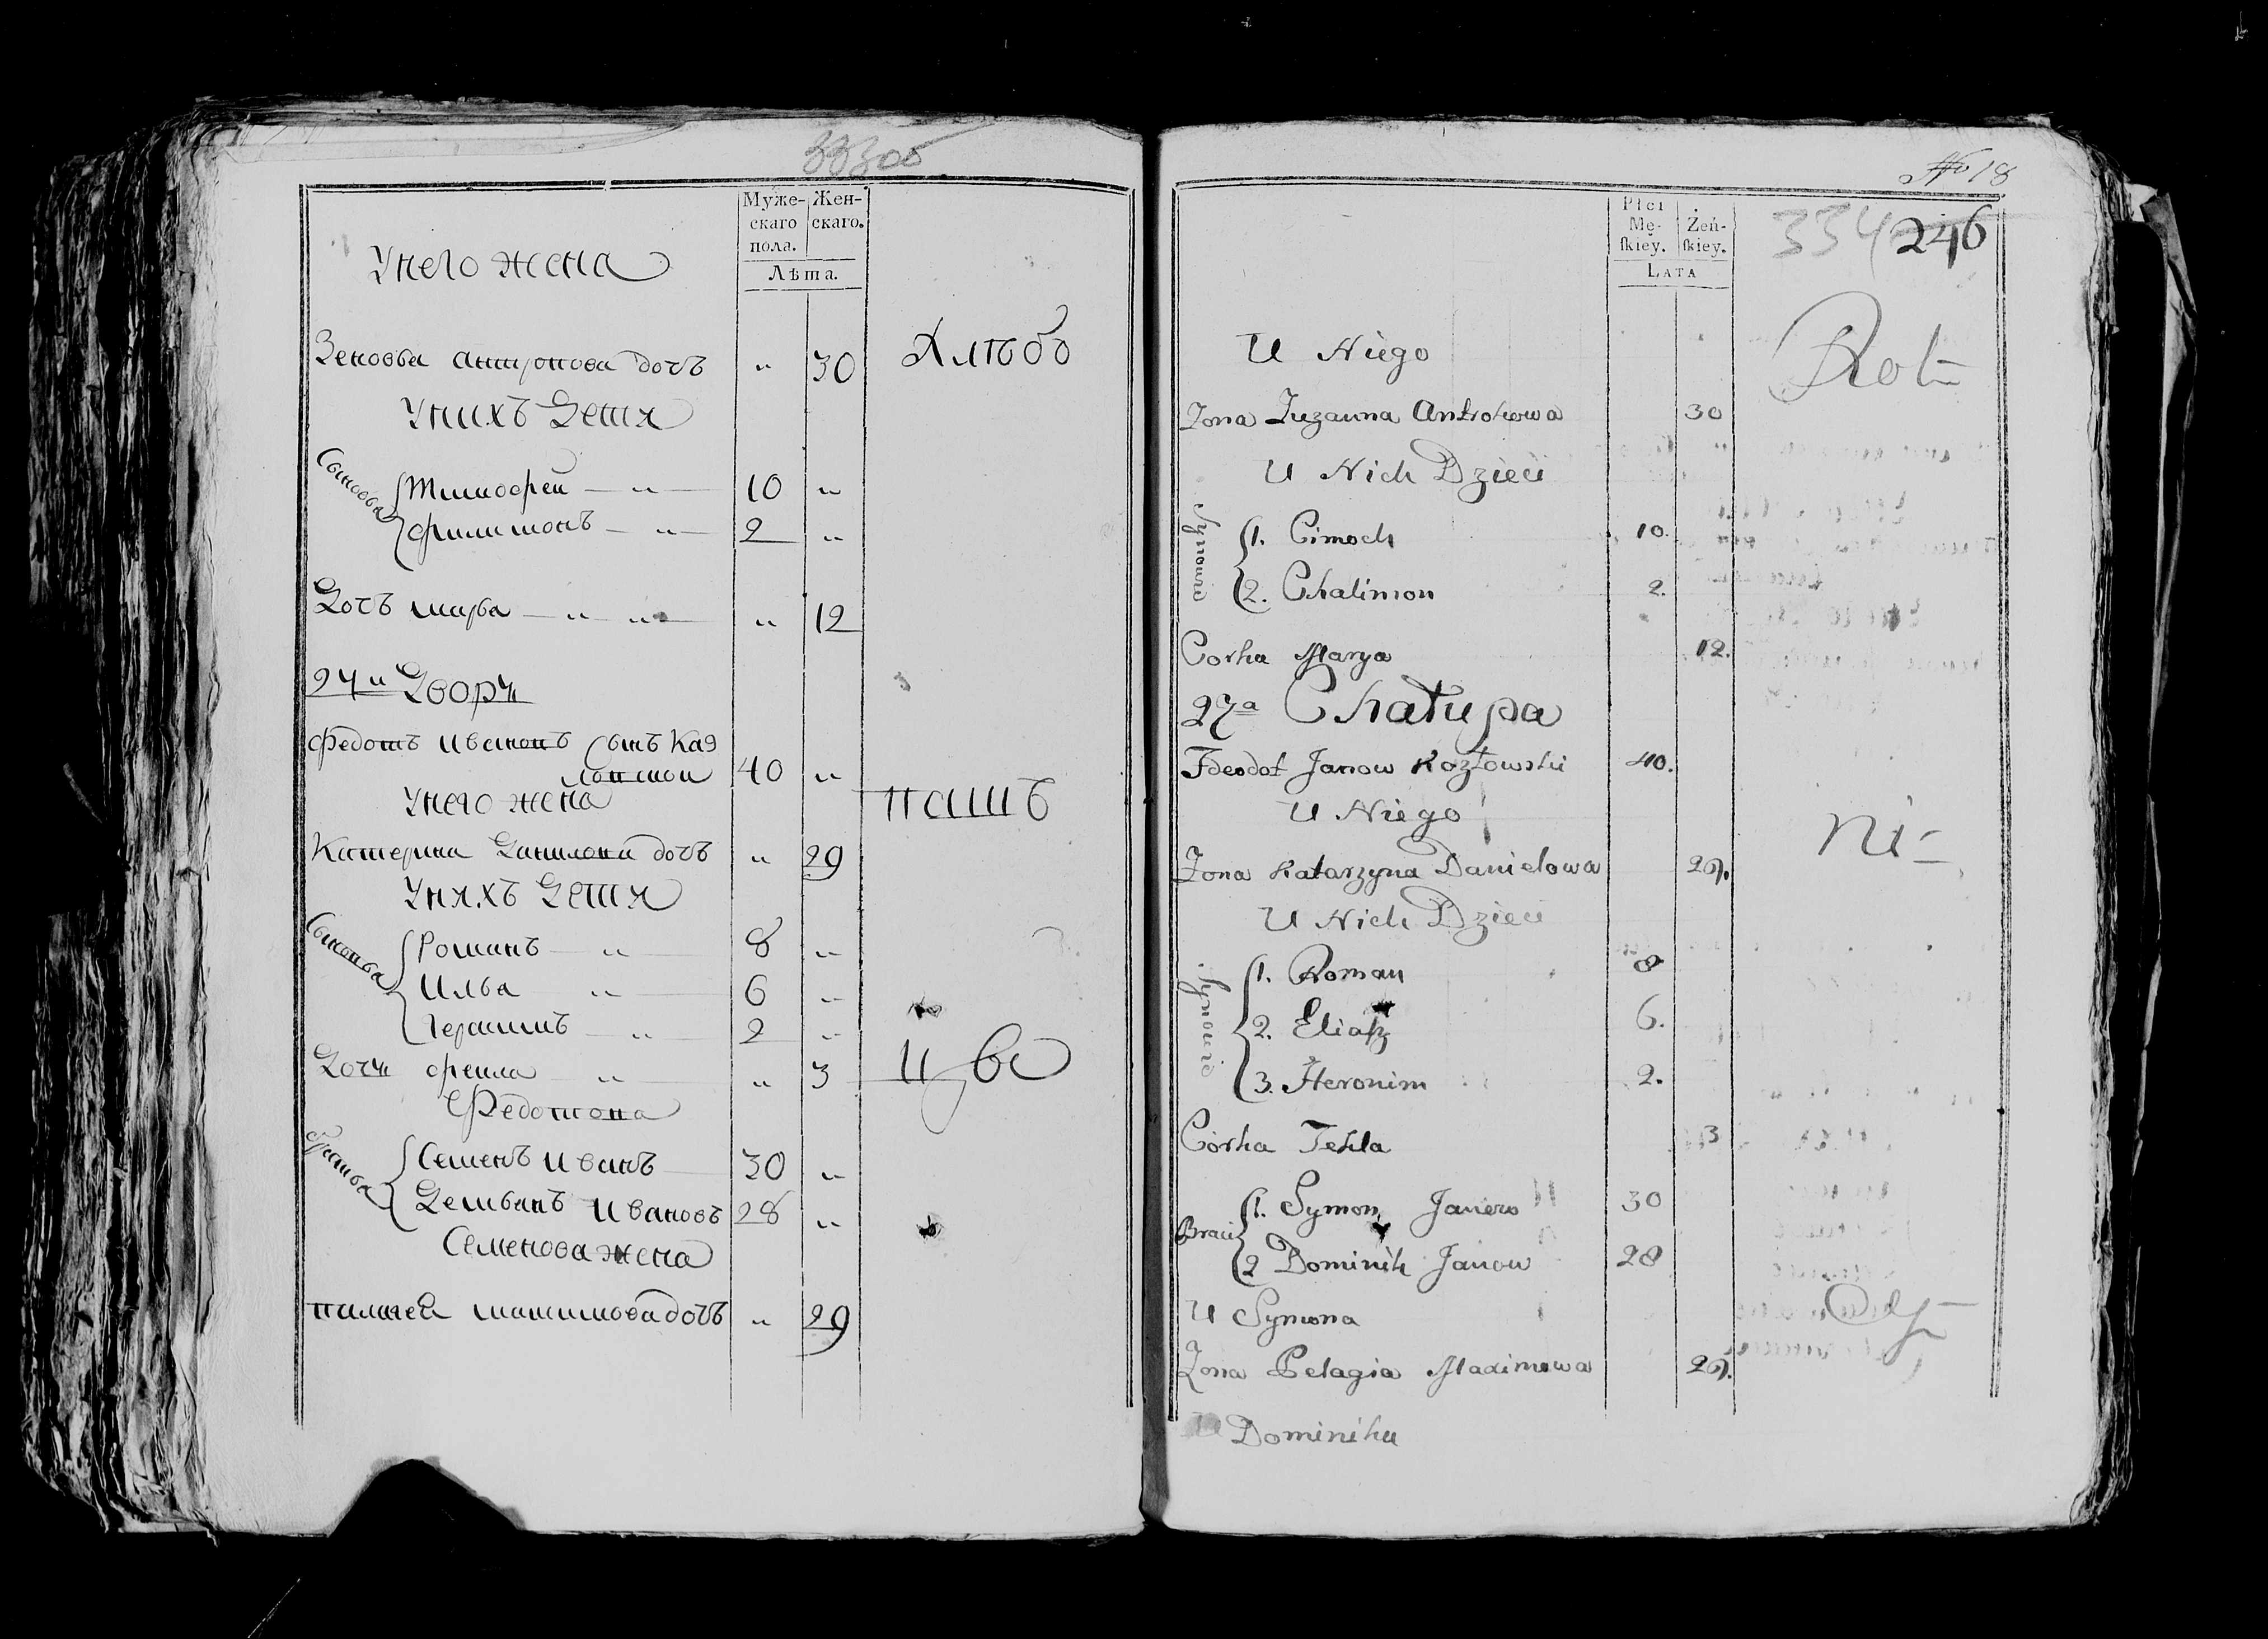 333об
Муже-
скаго
пола.
Жен-
скаго.
Лѣта.
Унего жена
Зеновьа антронова дочъ " 30
Хлѣбо
Унихъ Дети
Сыновьа
Тимофеи — " — 10 "
Филимонъ — " — 2 "
Дочъ марьа — " — " 12
27и Дворъ
Федотъ Ивановъ Сынъ Каз
ловской 40 "
Унего жена
пашъ
Катерина Данилова дочъ " 29
Унихъ Дети
Сыновьа
Романъ — " 8 "
Ильа " 6 "
Герасимъ — " 2 "
Дочи фекла " " 3
Федотова
братьа
Семенъ Иванъ 30 "
Демьанъ Ивановъ 28 "
Семенова жена
пилагеа матимова дочъ " 29
№ 18
334 246
Płci
Mę-
ſkiey.
Żeń-
ſkiey.
LATA
U Niego
Rol-
Zona Zuzanna Antronowa 30
U Nich Dzieci
Synowie
1. Cimoch 10.
2. Chalimon 2.
Corka Marya 12.
27a Chałupa
Fdeodot Janow Kozłowski 40.
U Niego
ni-
Zona Katarzyna Danielowa 29.
U Nich Dzieci
Synowie
1. Roman 8
2. Eliaſz 6.
3. Heronim 2.
Córka Tekla 3
Braci
1. Symon Janow 30
2 Dominik Janow 28
U Symona
Zona Pelagia Maximowa 29.
U Dominika